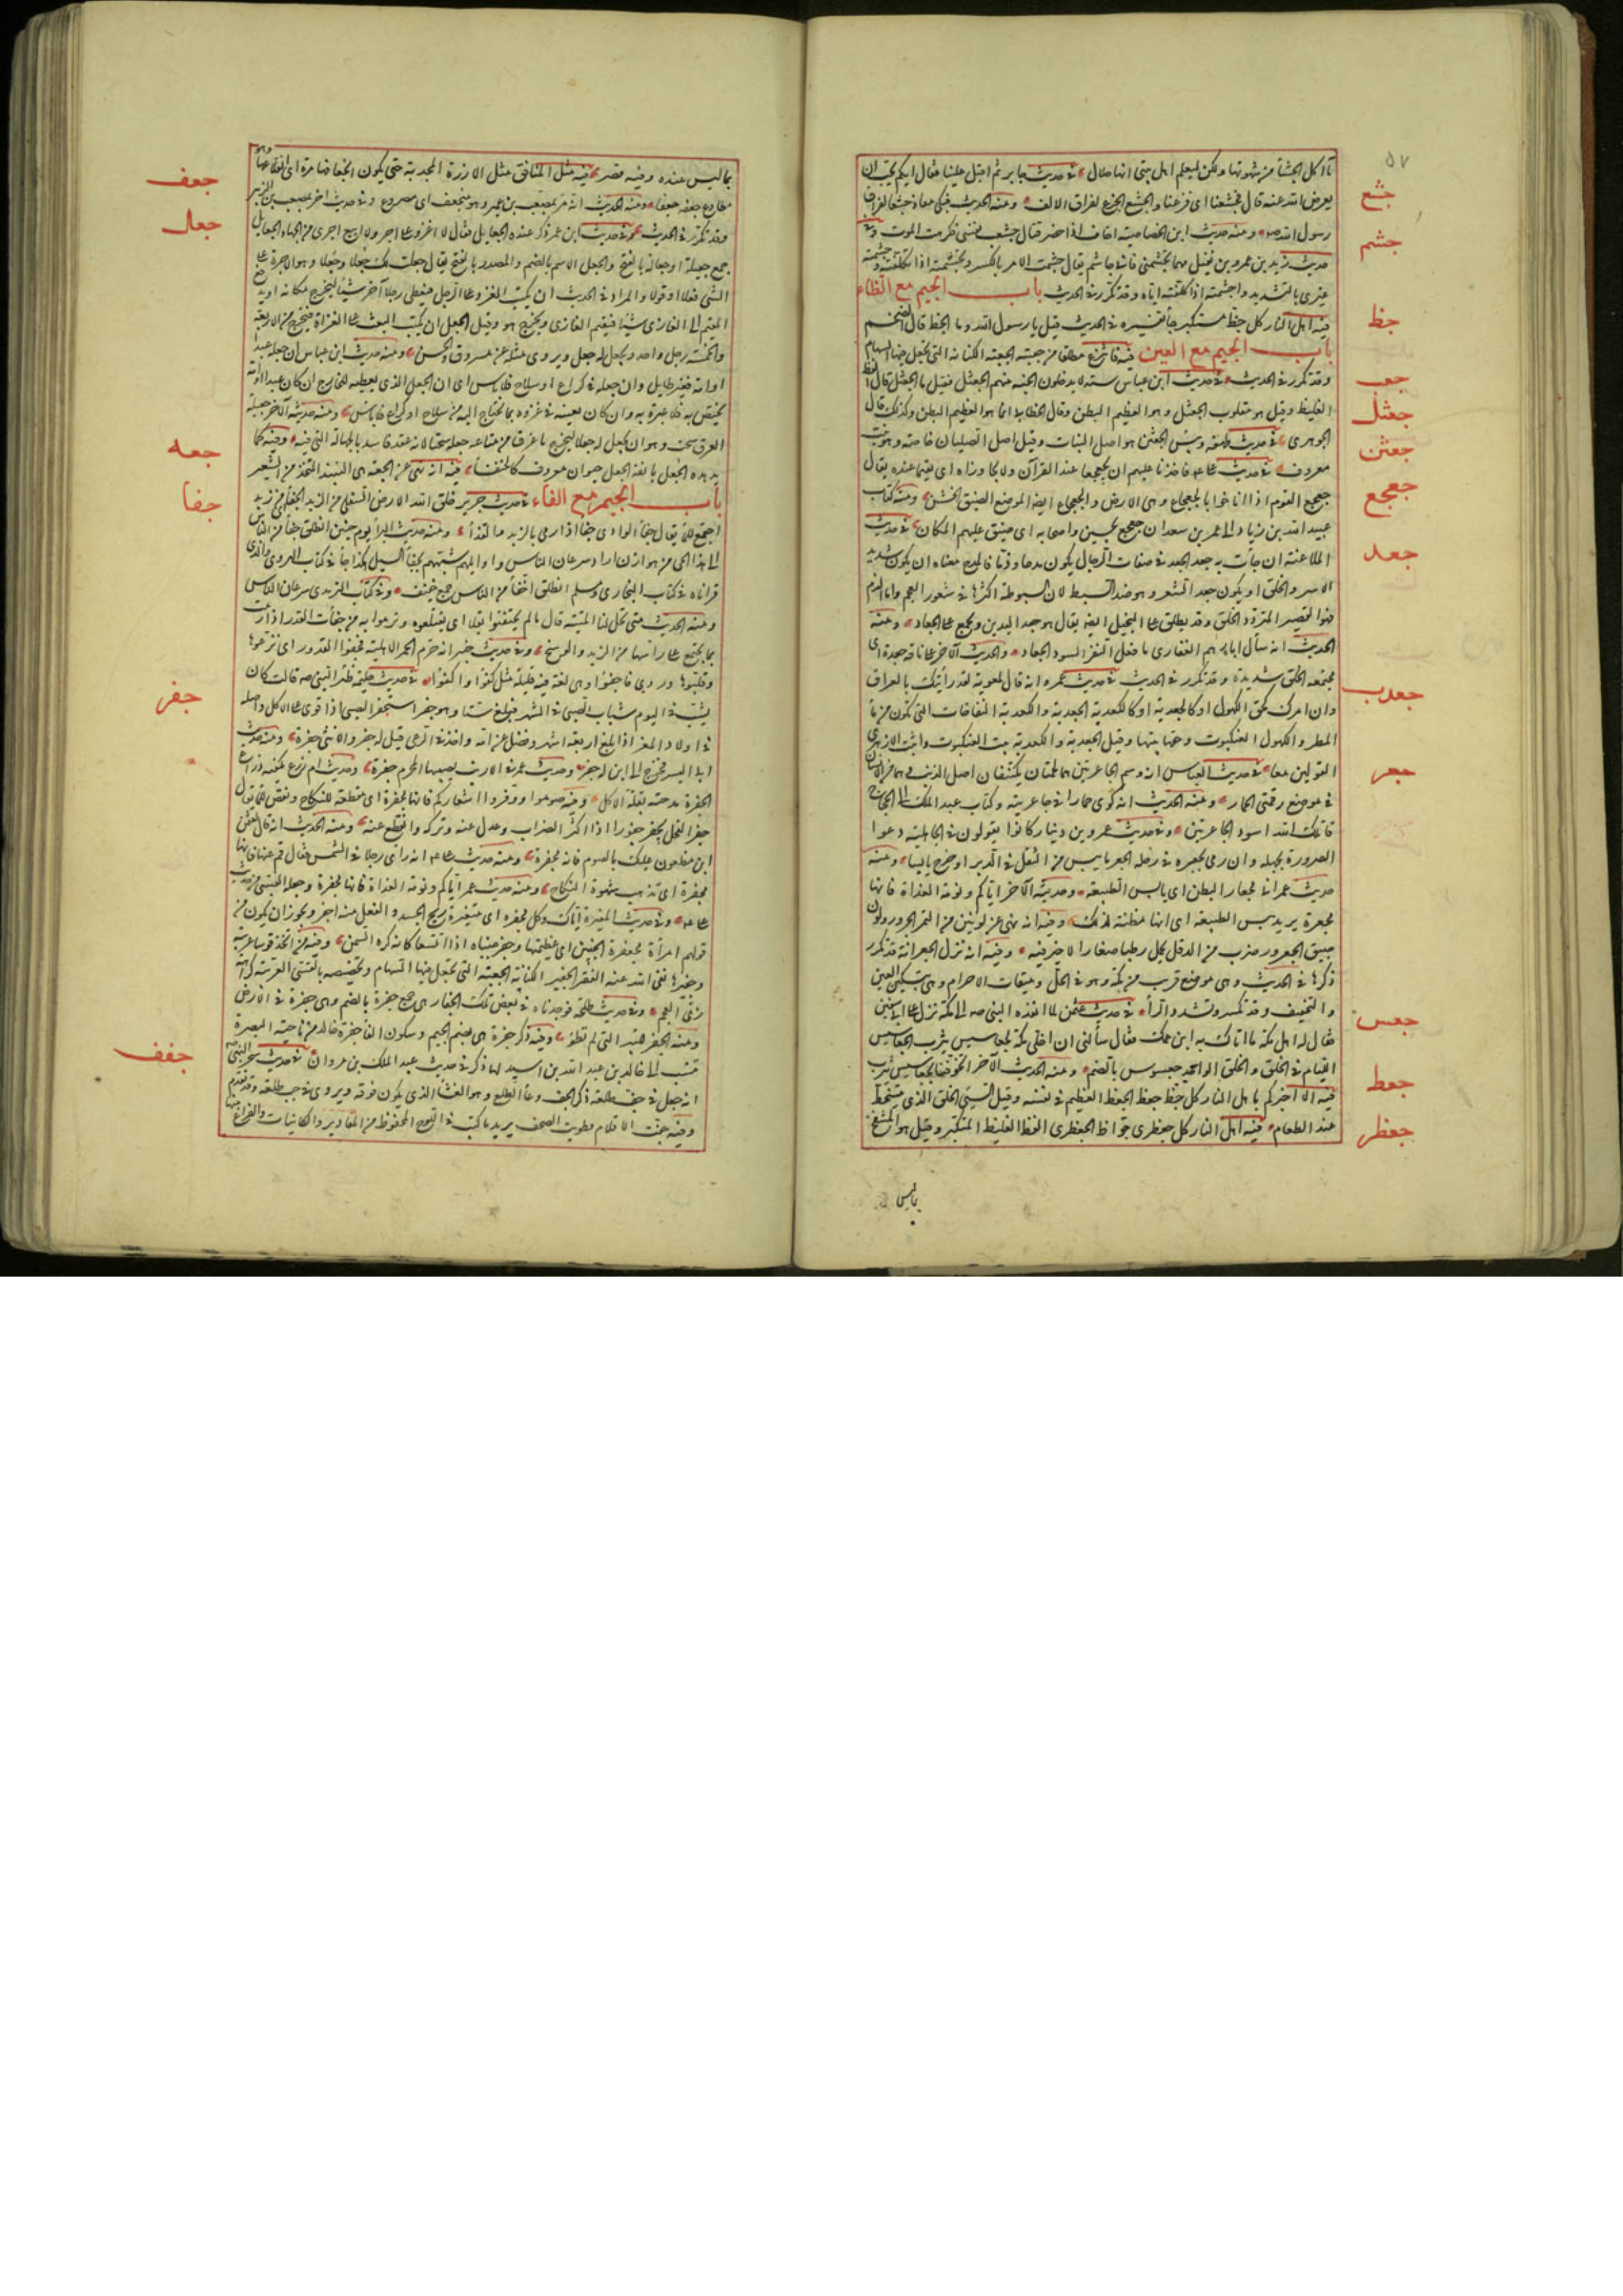 ٥٧
نأكل الجشأ من شهوتها ولكن ليعلم اهل بيتي انها حلال في حديث جابر ثم اقبل علينا فقال ايكم يحب ان
جشع
يعرض الله عنه قال فجشعنا اى فزعنا والجشع الجزع لفراق الالف ومنه الحديث فبكى معاذ جشعا لفراق
رسول الله صه ومنه حديث ابن الخصاصية اخاف اذا حضر قتال جشعت نفسي فكرهت الموت
جشم
حديث زيد بن عمرو بن نفيل مهما تجشمني فاني جاشم يقال جشمت الامر بالكسر وتجشمته اذا تكلفته وجشمته
غيرى بالتشديد واجشمته اذا كلفته اياه وقد تكرر في الحديث باب الجيم مع الظاء
جظ
فيه اهل النار كل جظ مستكبر جأ تفسيره في الحديث قيل يا رسول الله وما الجظ قال الضخم
باب الجيم مع العين فيه فانتزع طلقا من جعبته الجعبة الكنانة التي تجعل فيها السهام
جعب
وقد تكرر في الحديث في حديث ابن عباس ستة لا يدخلون الجنة منهم الجعثل فقيل ما الجعثل قال الفظ
جعثل
الغليظ وقيل هو مقلوب الجثعل وهو العظيم البطن وقال الخطابي انما هو العظيم البطن وكذلك قال
جعثن
الجوهرى في حديث طهفه ويبس الجعثن هو اصل النبات وقيل اصل الصليان خاصة وهو نبت
معروف في حديث على فاخذنا عليهم ان يجعجعا عند القرآن ولا يجاوزاه اى يقيما عنده يقال
جعجع
جعجع القوم اذا اناخوا بالجعجاع وهى الارض والجعجاع ايضا الموضع الضيق الخشن ومنه كتاب
عبيد الله بن زياد الى عمر بن سعد ان جعجع بحسين واصحابه اى ضيق عليهم المكان في حديث
جعد
الملاعنة ان جأت به جعدا الجعد في صفات الرجال يكون مدحا وذما فالمدح معناه ان يكون شديد
الاسر والخلق او يكون جعد الشعر وهو ضد السبط لان السبوطة اكثرها في شعور العجم واما الذم
فهو القصير المتردد الخلق وقد يطلق على البخيل ايضا يقال هو جعد اليدين ويجمع على الجعاد ومنه
الحديث انه سأل ابا رهم الغفارى ما فعل النفر السود الجعاد والحديث الآخر على ناقة جعدة اى
مجتمعة الخلق شديدة وقد تكرر في الحديث في حديث عمرو انه قال لمعوية لقد رأيتك بالعراق
جعدب
وان امرك كحق الكهول او كالجعدبة او كالكعدبة الجعدبة والكعدبة النفاخات التي تكون من مأ
المطر والكهول العنكبوت وحقها بيتها وقيل الجعدبة والكعدبة بيت العنكبوت واثبت الازهرى
جعر
القولين معا في حديث العباس انه وسم الجاعرتين هما لحمتان يكتنفان اصل الذنب وهما من الانسان
في موضع رقمتي الحمار ومنه الحديث انه كوى حمارا في جاعرتيه وكتاب عبد الملك الى الحجاج
قاتلك الله اسود الجاعرتين وفي حديث عمرو بن دينار كانوا يقولون في الجاهلية دعوا
الصرورة بجهله وان رمى بجعره في رحله الجعر ما يبس من الثقل في الدبر او خرج يابسا ومنه
حديث عمر اني مجعار البطن اى يابس الطبيعة وحديثه الآخر اياكم ونومة الغداة فانها
مجعرة يريد يبس الطبيعة اى انها مظنة لذلك وفيه انه نهى عن لونين من التمر الجعرور ولون
حبيق الجعرور ضرب من الدقل يحمل رطبا صغارا لا خير فيه وفيه انه نزل الجعرانة قد تكرر
ذكرها في الحديث وهى موضع قريب من مكة وهو في الحل وميقات الاحرام وهى بتسكين العين
والتخفيف وقد تكسر وتشدد الرأ في حديث عثمن لما انفذه النبي صه الى مكة نزل على ابي سفين
جعس
فقال له اهل مكة ما اتاك به ابن عمك فقال سألني ان اخلي مكة لجعاسيس يثرب الجعاسيس
اللئام في الخلق والخلق الواحد جعسوس بالضم ومنه الحديث الآخر اتخوفنا بجعاسيس يثرب
جعظ
فيه الا اخبركم باهل النار كل جظ جعظ الجعظ العظيم في نفسه وقيل السيئ الخلق الذى يتسخط
جعظر
عند الطعام فيه اهل النار كل جعظرى جواظ الجعظرى الفظ الغليظ المتكبر وقيل هو المنتفخ
بماليس
بما ليس عنده وفيه قصر فيه مثل المنافق مثل الارزة المجدية حتى يكون انجعافها مرة اى انقلاعها وهو
جعف
مطاوع جعفه جعفا ومنه الحديث انه مر بمصعب بن عمير وهو منجعف اى مصروع وفي حديث اخر بمصعب بن الزبير
جعل
وقد تكرر في الحديث في حديث ابن عمر ذكر عنده الجعايل فقال لا اغزو على اجر ولا ابيع اجرى من الجهاد الجعايل
جمع جعيلة او جعالة بالفتح والجعل الاسم بالضم والمصدر بالفتح يقال جعلت لك جعلا وجعلا وهو الاجرة على
الشئ فعلا او قولا والمراد في الحديث ان يكتب الغزو على الرجل فيعطى رجلا آخر شيئا ليخرج مكانه او يدفع
المقيم الى الغازى شيئا فيقيم الغازى ويخرج هو وقيل الجعل ان يكتب البعث على الغزاة فيخرج من الاربعة
والخمسة رجل واحد ويجعل له جعل ويروى مثله عن مسروق والحسن ومنه حديث ابن عباس ان جعله عبدا
او امة فغير طايل وان جعله في كراع او سلاح فلا بأس اى ان الجعل الذى يعطيه للخارج ان كان عبدا او امة
يختص به فلا عبرة به وان كان يعينه في غزوه بما يحتاج اليه من سلاح او كراع فلا بأس ومنه حديثه الآخر جعيلة
الغرق سحت وهو ان يجعل له جعلا ليخرج ما غرق من متاعه جعله سحتا لانه عقد فاسد بالجهالة التي فيه وفيه كما
جعه
يدهده الجعل بانفه الجعل حيوان معروف كالخنفسأ فيه انه نهى عن الجعة هى النبيذ المتخذ من الشعير
جفا
باب الجيم مع الفاء في حديث جرير خلق الله الارض السفلى من الزبد الجفأ اى من زبد
اجتمع للمأ يقال جفأ الوادى جفأ اذا رمى بالزبد والقذأ ومنه حديث البرأ يوم حنين انطلق جفأ من الناس
الى هذا الحى من هوازن اراد سرعان الناس واوايلهم شبههم بجفأ السيل هكذا جأ في كتاب الهروى والذى
قرأناه في كتاب البخارى ومسلم انطلق اخفأ من الناس جمع خفيف وفي كتاب الترمذى سرعان الناس
ومنه الحديث متى تحل لنا الميتة قال ما لم تجتفئوا بقلا اى تقتلعوه وترموا به من جفأت القدر اذا رمت
بما يجتمع على رأسها من الزبد والوسخ وفي حديث خيبر انه حرم الحمر الاهلية فجفئوا القدور اى فرغوها
وقلبوها وروى فاجفئوا وهى لغة فيه قليلة مثل كفئوا واكفئوا في حديث حليمة ظئر النبي صه قالت كان
جفر
يشب في اليوم شباب الصبي في الشهر فبلغ ستا وهو جفر استجفر الصبي اذا قوى على الاكل واصله
في اولاد المعز اذا بلغ اربعة اشهر وفصل عن امه واخذ في الرعى قيل له جفر والانثى جفرة ومنه حديث
ابي اليسر فخرج الى ابن له جفر وحديث عمر في الارنب يصيبها المحرم جفرة وحديث ام زرع يكفيه ذراع
الجفرة مدحته بقلة الاكل وفيه صوموا ووفروا اشعاركم فانها مجفرة اى مقطعة للنكاح ونقص للمأ يقال
جفر الفحل يجفر جفورا اذا اكثر الضراب وعدل عنه وتركه وانقطع عنه ومنه الحديث انه قال لعثمن
ابن مظعون عليك بالصوم فانه مجفرة ومنه حديث على انه رأى رجلا في الشمس فقال قم عنها فانها
مجفرة اى تذهب شهوة النكاح ومنه حديث عمر اياكم ونومة الغداة فانها مجفرة وجعله القتيبي من حديث
على وفي حديث المغيرة اياك وكل مجفرة اى متغيرة ريح الجسد والفعل منه اجفر ويجوز ان يكون من
قولهم امرأة مجفرة الجنبين اى عظيمتها وجفر جنباه اذا اتسعا كانه كره السمن وفيه من اتخذ قوسا عربية
وجفيرها نفى الله عنه الفقر الجفير الكنانة الجعبة التي تجعل فيها السهام وتخصيصه بالقسي العربية كراهية
زى العجم وفي حديث طلحة فوجدناه في بعض تلك الجفار هى جمع جفرة بالضم وهى حفرة في الارض
ومنه الجفر للبئر التي لم تطو وفيه ذكر جفرة هى بضم الجيم وسكون الفأ جفرة خالد من ناحية البصرة
جفف
تنسب الى خالد بن عبد الله بن اسيد لها ذكر في حديث عبد الملك بن مروان في حديث سحر النبي صه
انه جعل في جف طلعة ذكر الجف وعأ الطلع وهو الغشأ الذى يكون فوقه ويروى في جب طلعة وقد تقدم
وفيه جفت الاقلام وطويت الصحف يريد ما كتب في اللوح المحفوظ من المقادير والكاينات والفراغ منها